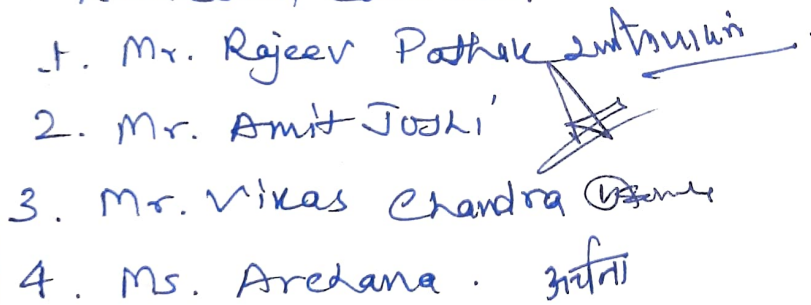 1. Mr. Rajeev Pathak
2. Mr. Amit Joshi
3. Mr. Vikas Chandra
4. Ms. Archana. अर्चना